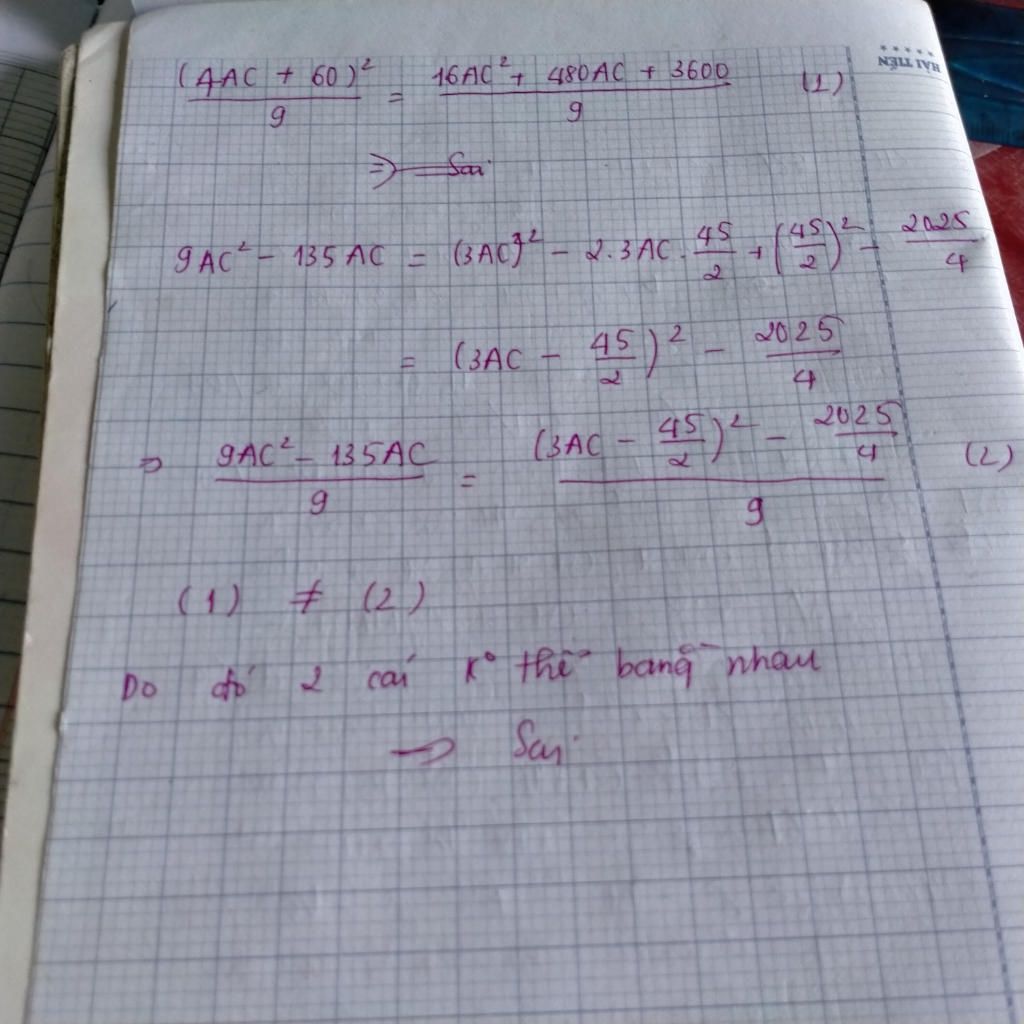 HẢI TIẾN
(4AC + 60)² / 9 = 16AC² + 480AC + 3600 / 9 (1)
=> Sai
9AC² - 135AC = (3AC)² - 2.3AC . 45/2 + (45/2)² - 2025/4
= (3AC - 45/2)² - 2025/4
=> 9AC² - 135AC / 9 = (3AC - 45/2)² - 2025/4 / 9 (2)
(1) ≠ (2)
Do đó 2 cái k° thể bằng nhau
=> Sai